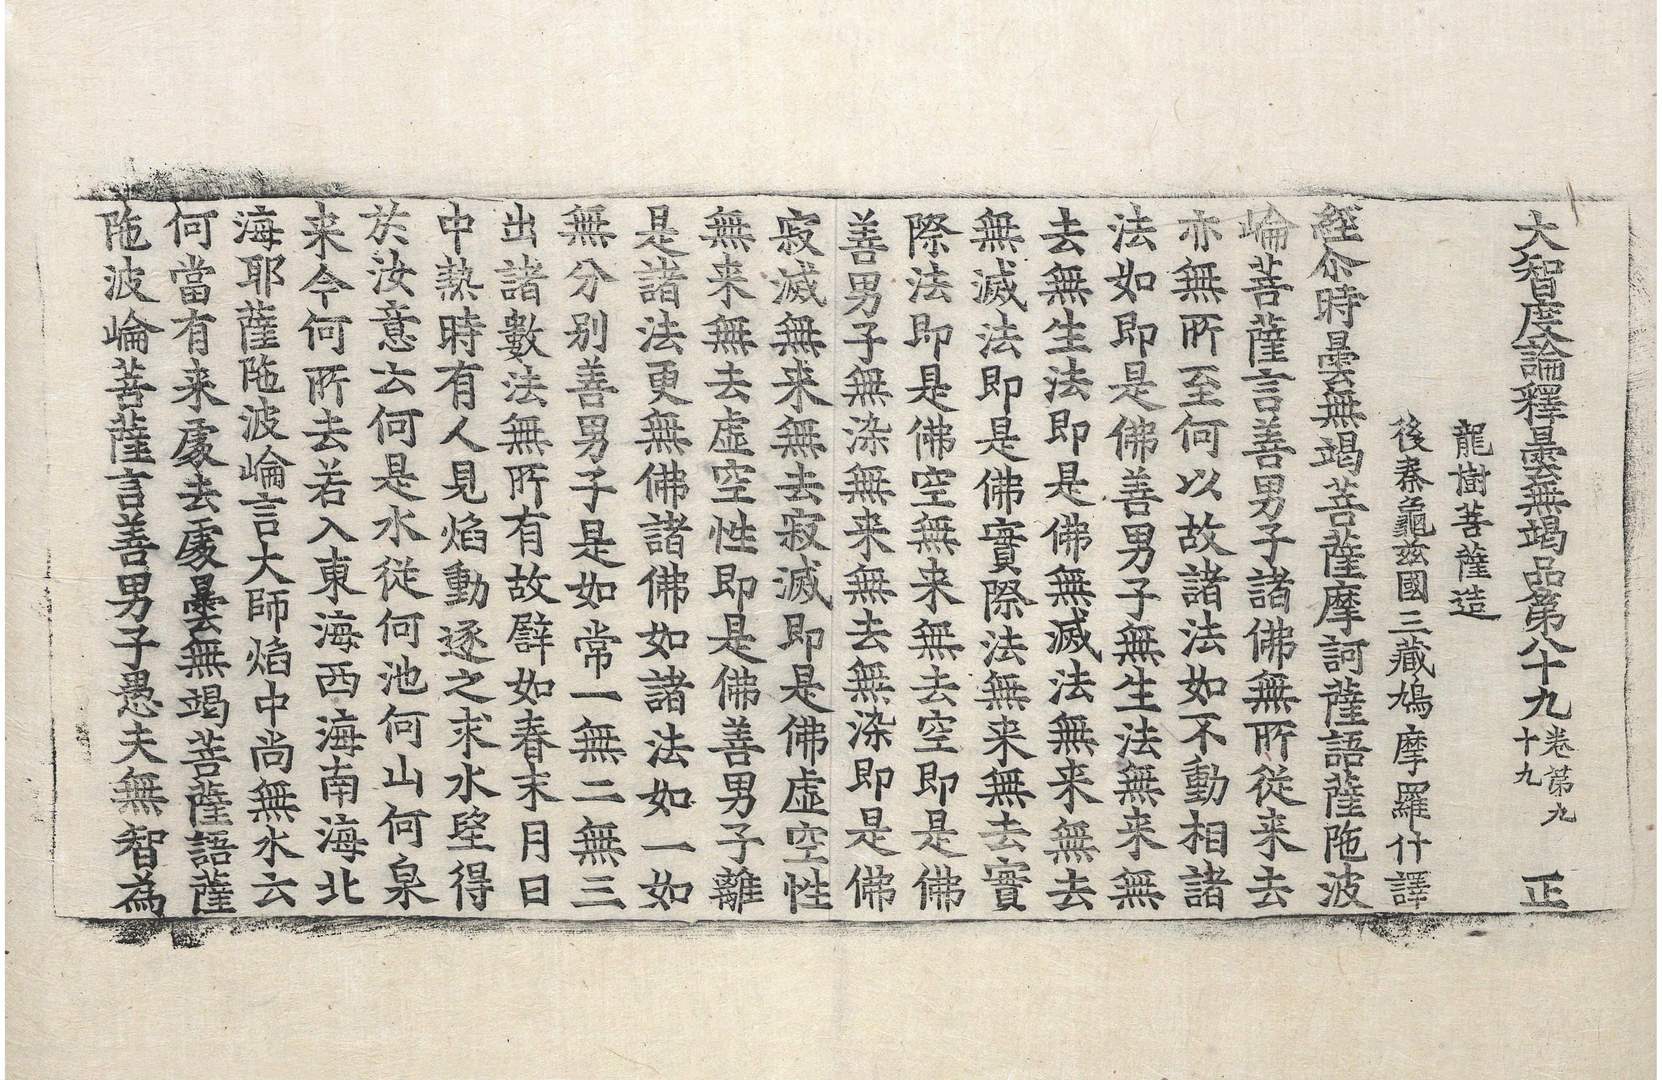 大智度論釋曇無竭品第八十九卷第九十九　正
龍樹菩薩造
後秦龜茲國三藏鳩摩羅什譯
經尒時曇無竭菩薩摩訶薩語薩陁波
崘菩薩言善男子諸佛無所從来去
亦無所至何以故諸法如不動相諸
法如即是佛善男子無生法無来無
去無生法即是佛無滅法無来無去
無滅法即是佛實際法無来無去實
際法即是佛空無来無去空即是佛
善男子無染無来無去無染即是佛
寂滅無来無去寂滅即是佛虛空性
無来無去虛空性即是佛善男子離
是諸法更無佛諸佛如諸法如一如
無分别善男子是如常一無二無三
出諸數法無所有故譬如春末月日
中熱時有人見焰動逐之求水望得
於汝意云何是水從何池何山何泉
来今何所去若入東海西海南海北
海耶薩陁波崘言大師焰中尚無水云
何當有来處去處曇無竭菩薩語薩
陁波崘菩薩言善男子愚夫無智為